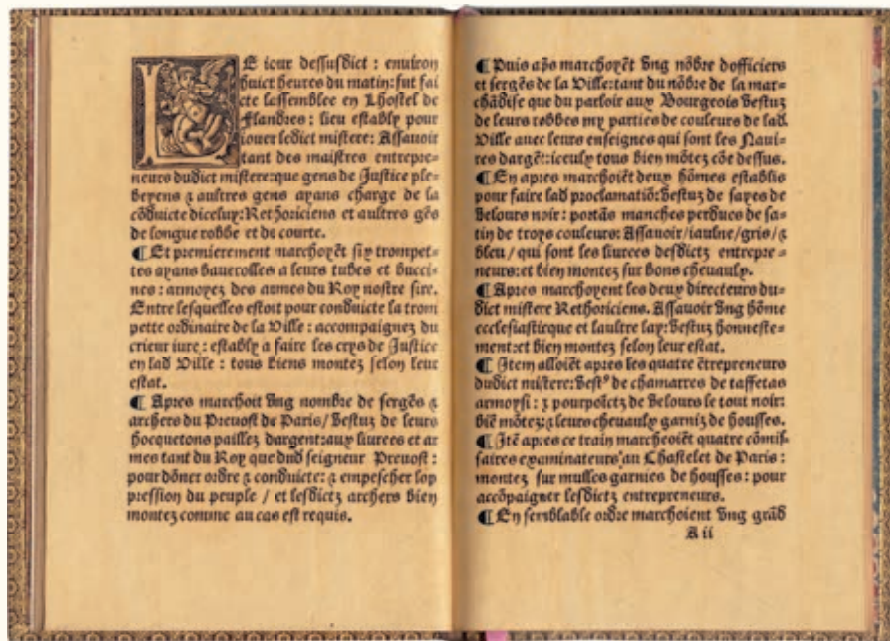 LE iour dessusdict : enuiron
huict heures du matin: fut fai
cte lassemblee en Lhostel de
Flandres : lieu estably pour
iouer ledict mistere: Assauoir
tant des maistres entrepre=
neurs dudict mistere: que gens de Justice ple=
beyens ⁊ aultres gens ayans charge de la
cõduicte diceluy: Rethoriciens et aultres gẽs
de longue robbe et de courte.
¶ Et premierement marchoyẽt six trompet=
tes ayans bauerolles a leurs tubes et bucci=
nes : armoyez des armes du Roy nostre sire.
Entre lesquelles estoit pour conduicte la trom
pette ordinaire de la Ville : accompaignez du
crieur iure : estably a faire les crys de Justice
en lad Ville : tous biens montez selon leur
estat.
¶ Apres marchoit vng nombre de sergẽs ⁊
archers du Preuost de Paris / vestuz de leurs
hocquetons paillez dargent: aux liurees et ar
mes tant du Roy que dud seigneur Preuost :
pour dõner ordre ⁊ conduicte: ⁊ empescher lop
pression du peuple / et lesdictz archers bien
montez comme au cas est requis.
¶ Puis apẽs marchoyẽt vng nõbre dofficiers
et sergẽs de la Ville: tant du nõbre de la mar=
chãdise que du parloir aux Bourgeois vestuz
de leurs robbes my parties de couleurs de lad
Ville auec leurs enseignes qui sont les Naui=
res dargẽt: iceulx tous bien mõtez cõe dessus.
¶ En apres marchoiẽt deux hõmes establis
pour faire lad proclamatiõ: vestuz de sayes de
velours noir : portãs manches perdues de sa=
tin de troys couleurs: Assauoir / iaulne / gris / ⁊
bleu / qui sont les liurees desdictz entrepre=
neurs: et bien montez sur bons cheuaulx.
¶ Apres marchoyent les deux directeurs du=
dict mistere Rethoriciens. Assauoir vng hõme
ecclesiasticque et laultre lay: vestuz honneste=
ment: et bien montez selon leur estat.
¶ Item alloiẽt apres les quatre ẽtrepreneurs
dudict mistere: vestꝰ de chamarres de taffetas
armoysi : ⁊ pourpoĩctz de velours le tout noir:
biẽ mõtez: ⁊ leurs cheuaulx garniz de housses.
¶ Itẽ apres ce train marcheoiẽt quatre cõmis=
saires examinateurs au Chastelet de Paris :
montez sur mulles garnies de housses : pour
accõpaigner lesdictz entrepreneurs.
¶ En semblable ordre marchoient vng grãd
A ii